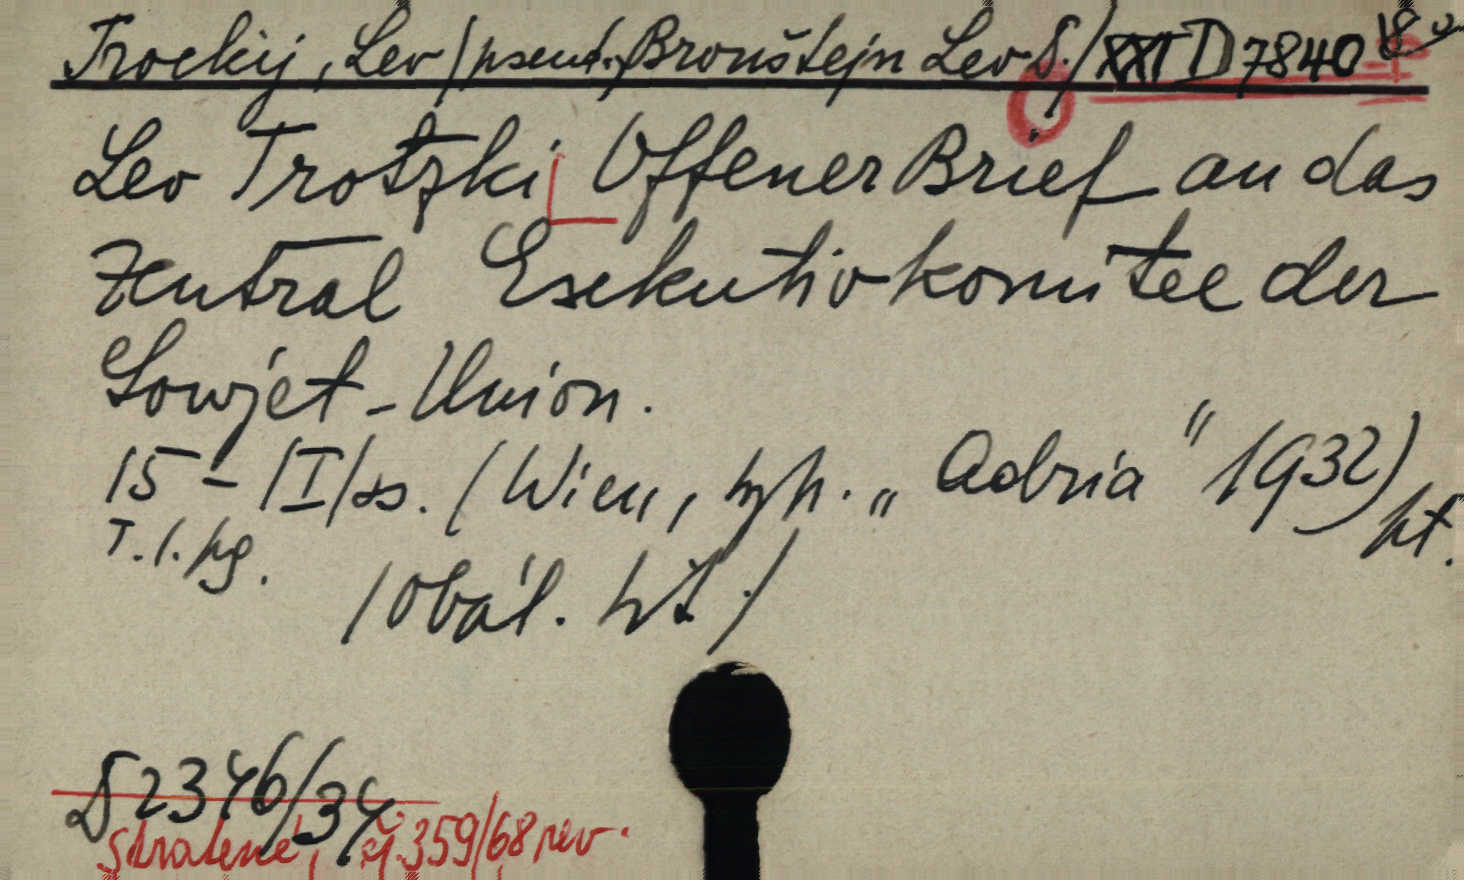 Trockij, Lev /pseud./ Bronštejn Lev D./ XXI D 7840
Lev Trotzki Offener Brief an das
Zentral Esekutivkomitee der
Sowjet-Union.
15 - /I/ ss. (Wien, "Adria" 1932)
T. l. kg.
/obál. /
2346/34
Stratené, 359/68 rev.